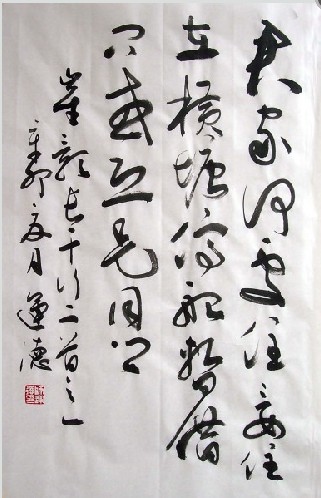 君家何處住妾住
在横塘停船暫借
问或恐是同乡
崔颢長干行二首之一
辛卯夏月德